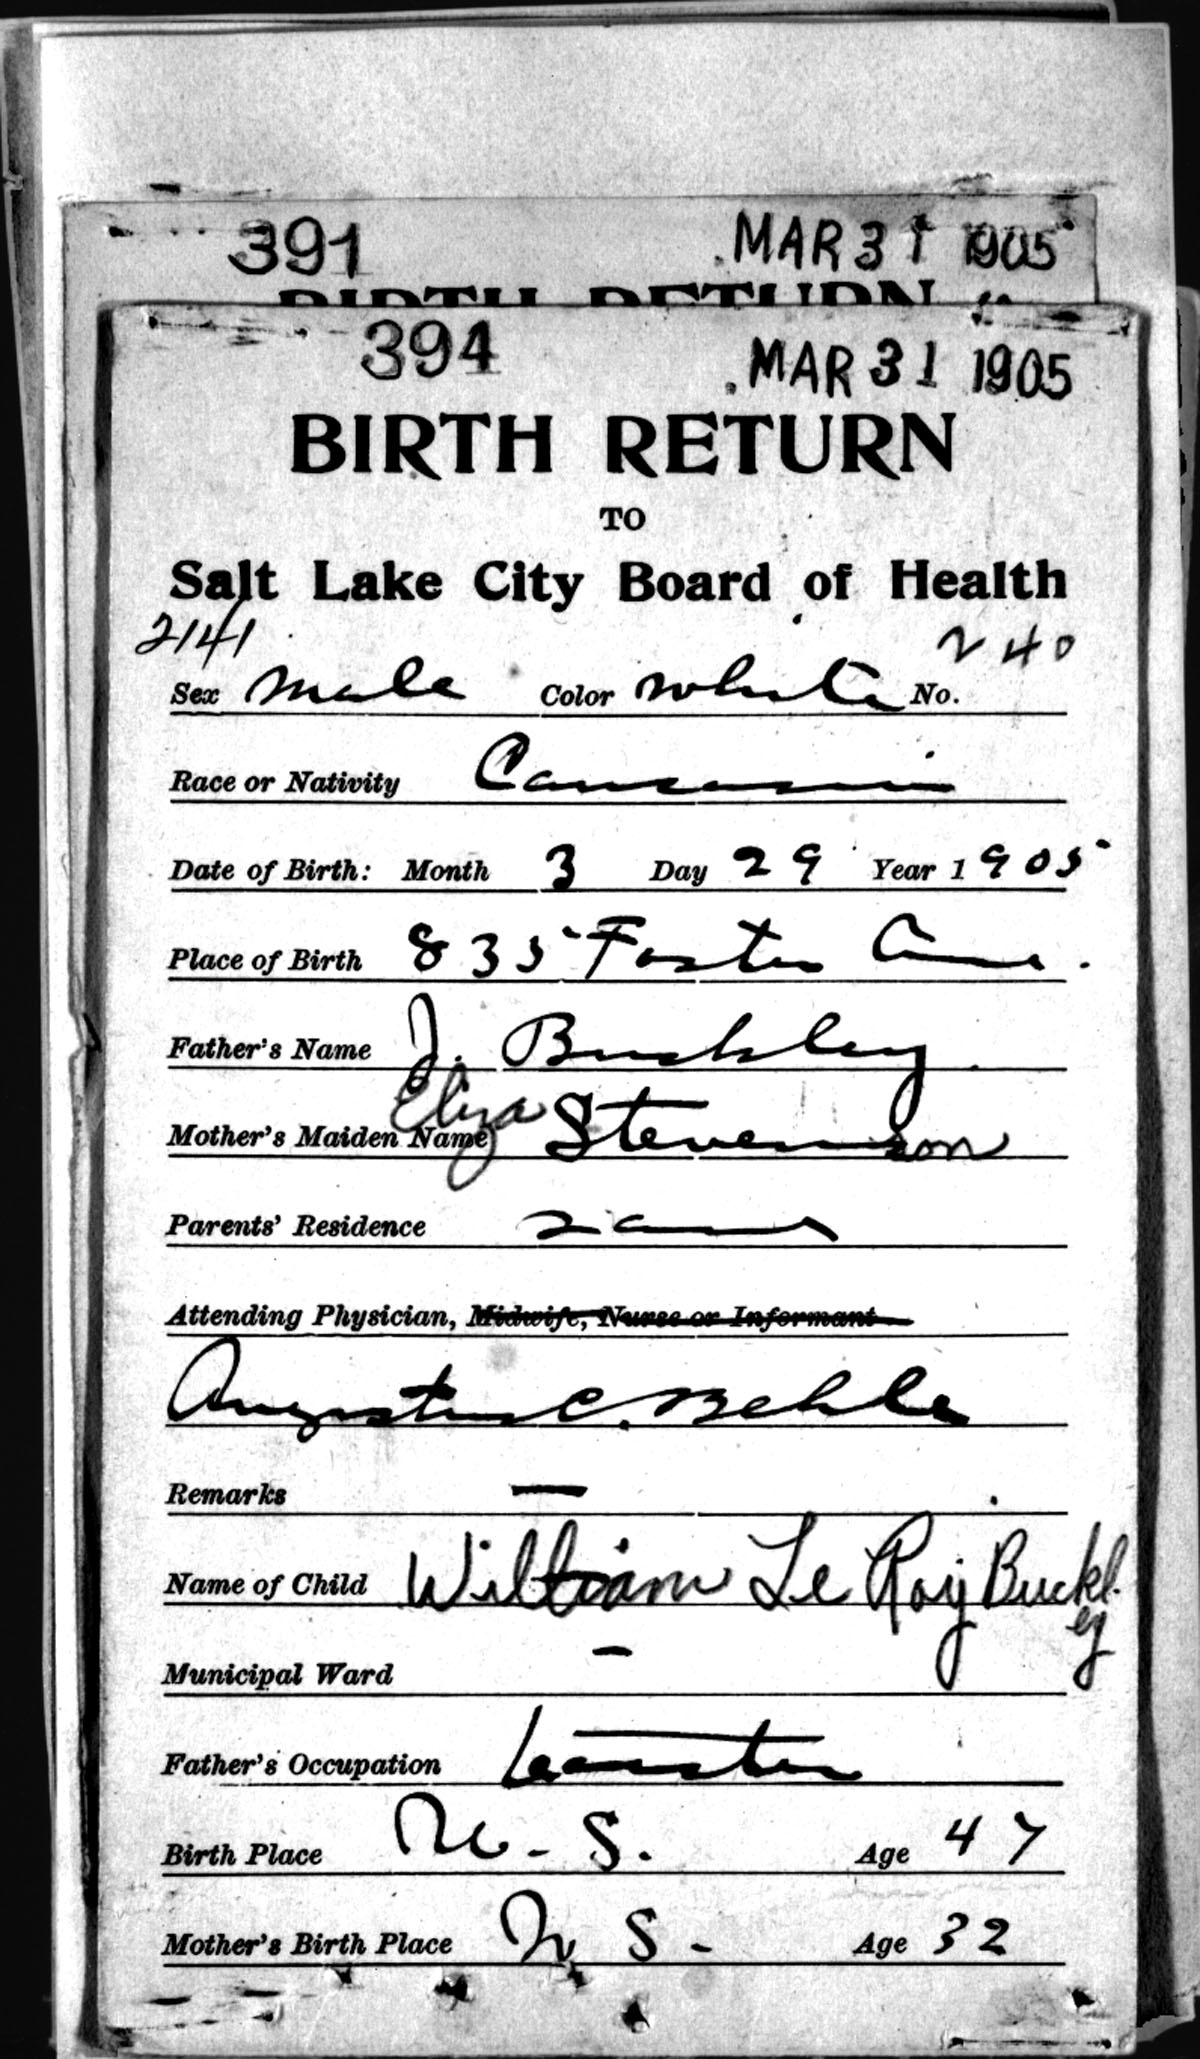 391 MAR 31 1905
BIRTH RETURN
394 MAR 31 1905
BIRTH RETURN
TO
Salt Lake City Board of Health
2141 240
Sex male Color white No.
Race or Nativity Caucasian
Date of Birth: Month 3 Day 29 Year 1905
Place of Birth 835 Foster Ave.
Father's Name J. Buckley
Mother's Maiden Name Eliza Stevenson
Parents' Residence same
Attending Physician, Midwife, Nurse or Informant
Augustus C. Behle
Remarks —
Name of Child William Le Roy Buckley
Municipal Ward —
Father's Occupation teamster
Birth Place U.S. Age 47
Mother's Birth Place U S - Age 32